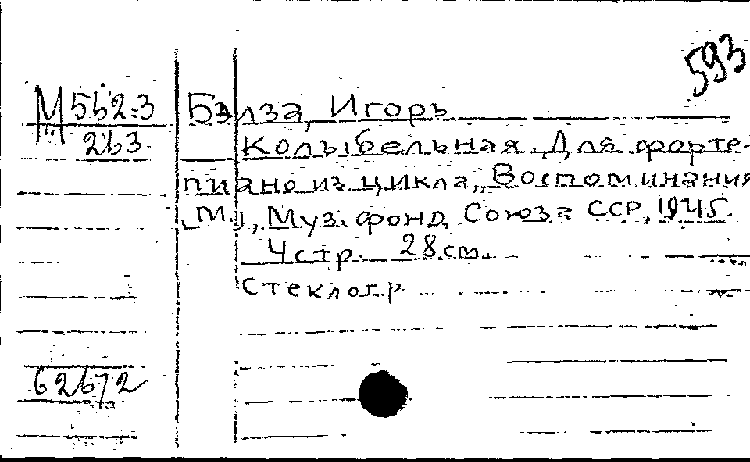 593
М552.3 Бэлза, Игорь
263. Колыбельная. Для форте-
пиано из цикла „Воспоминания
[М.], Муз. фонд Союза ССР, 1945.
4 стр. 28 см.
Стеклогр.
62672